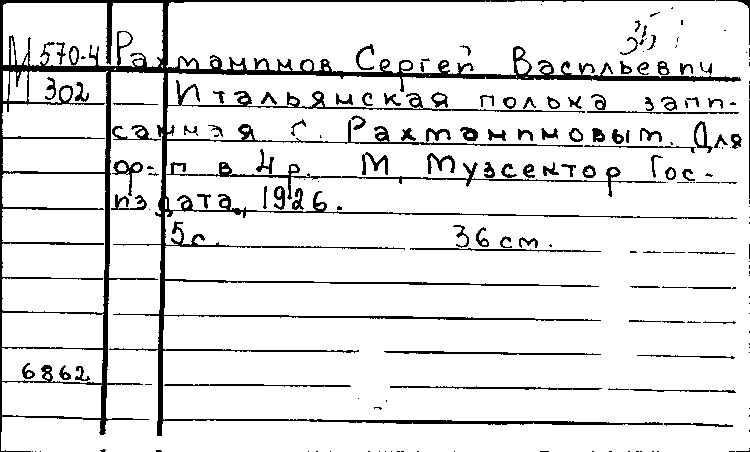 М 570-4 Рахманинов, Сергей Васильевич
302 Итальянская полька запи-
санная С. Рахманиновым. Для
ф-п в 4 р. М, Музсектор Гос-
издата, 1926.
5 с. 36 см.
6862